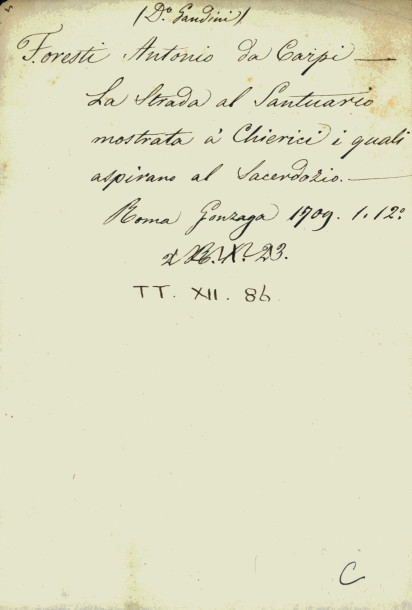 (Do. Gandini)
Foresti Antonio da Carpi —
La Strada al Santuario
mostrata a' Chierici i quali
aspirano al Sacerdozio. —
Roma Gonzaga 1709. 1. 12o
23.
TT. XII. 86
C